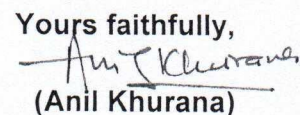 Yours faithfully,
Anil Khurana
(Anil Khurana)